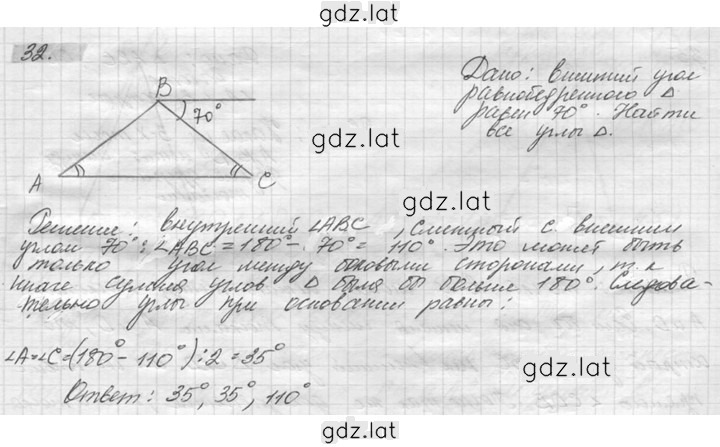 gdz.lat
32.
B
70°
A
C
Дано: внешний угол
равнобедренного Δ
равен 70°. Найти
все углы Δ.
gdz.lat
gdz.lat
Решение: внутренний ∠ABC, смежный с внешним
углом 70°: ∠ABC = 180° - 70° = 110°. Это может быть
только угол между боковыми сторонами, т.к
иначе сумма углов Δ была бы больше 180°. Следова-
тельно углы при основании равны:
∠A=∠C=(180° - 110°):2 = 35°
gdz.lat
Ответ: 35°, 35°, 110°
gdz.lat